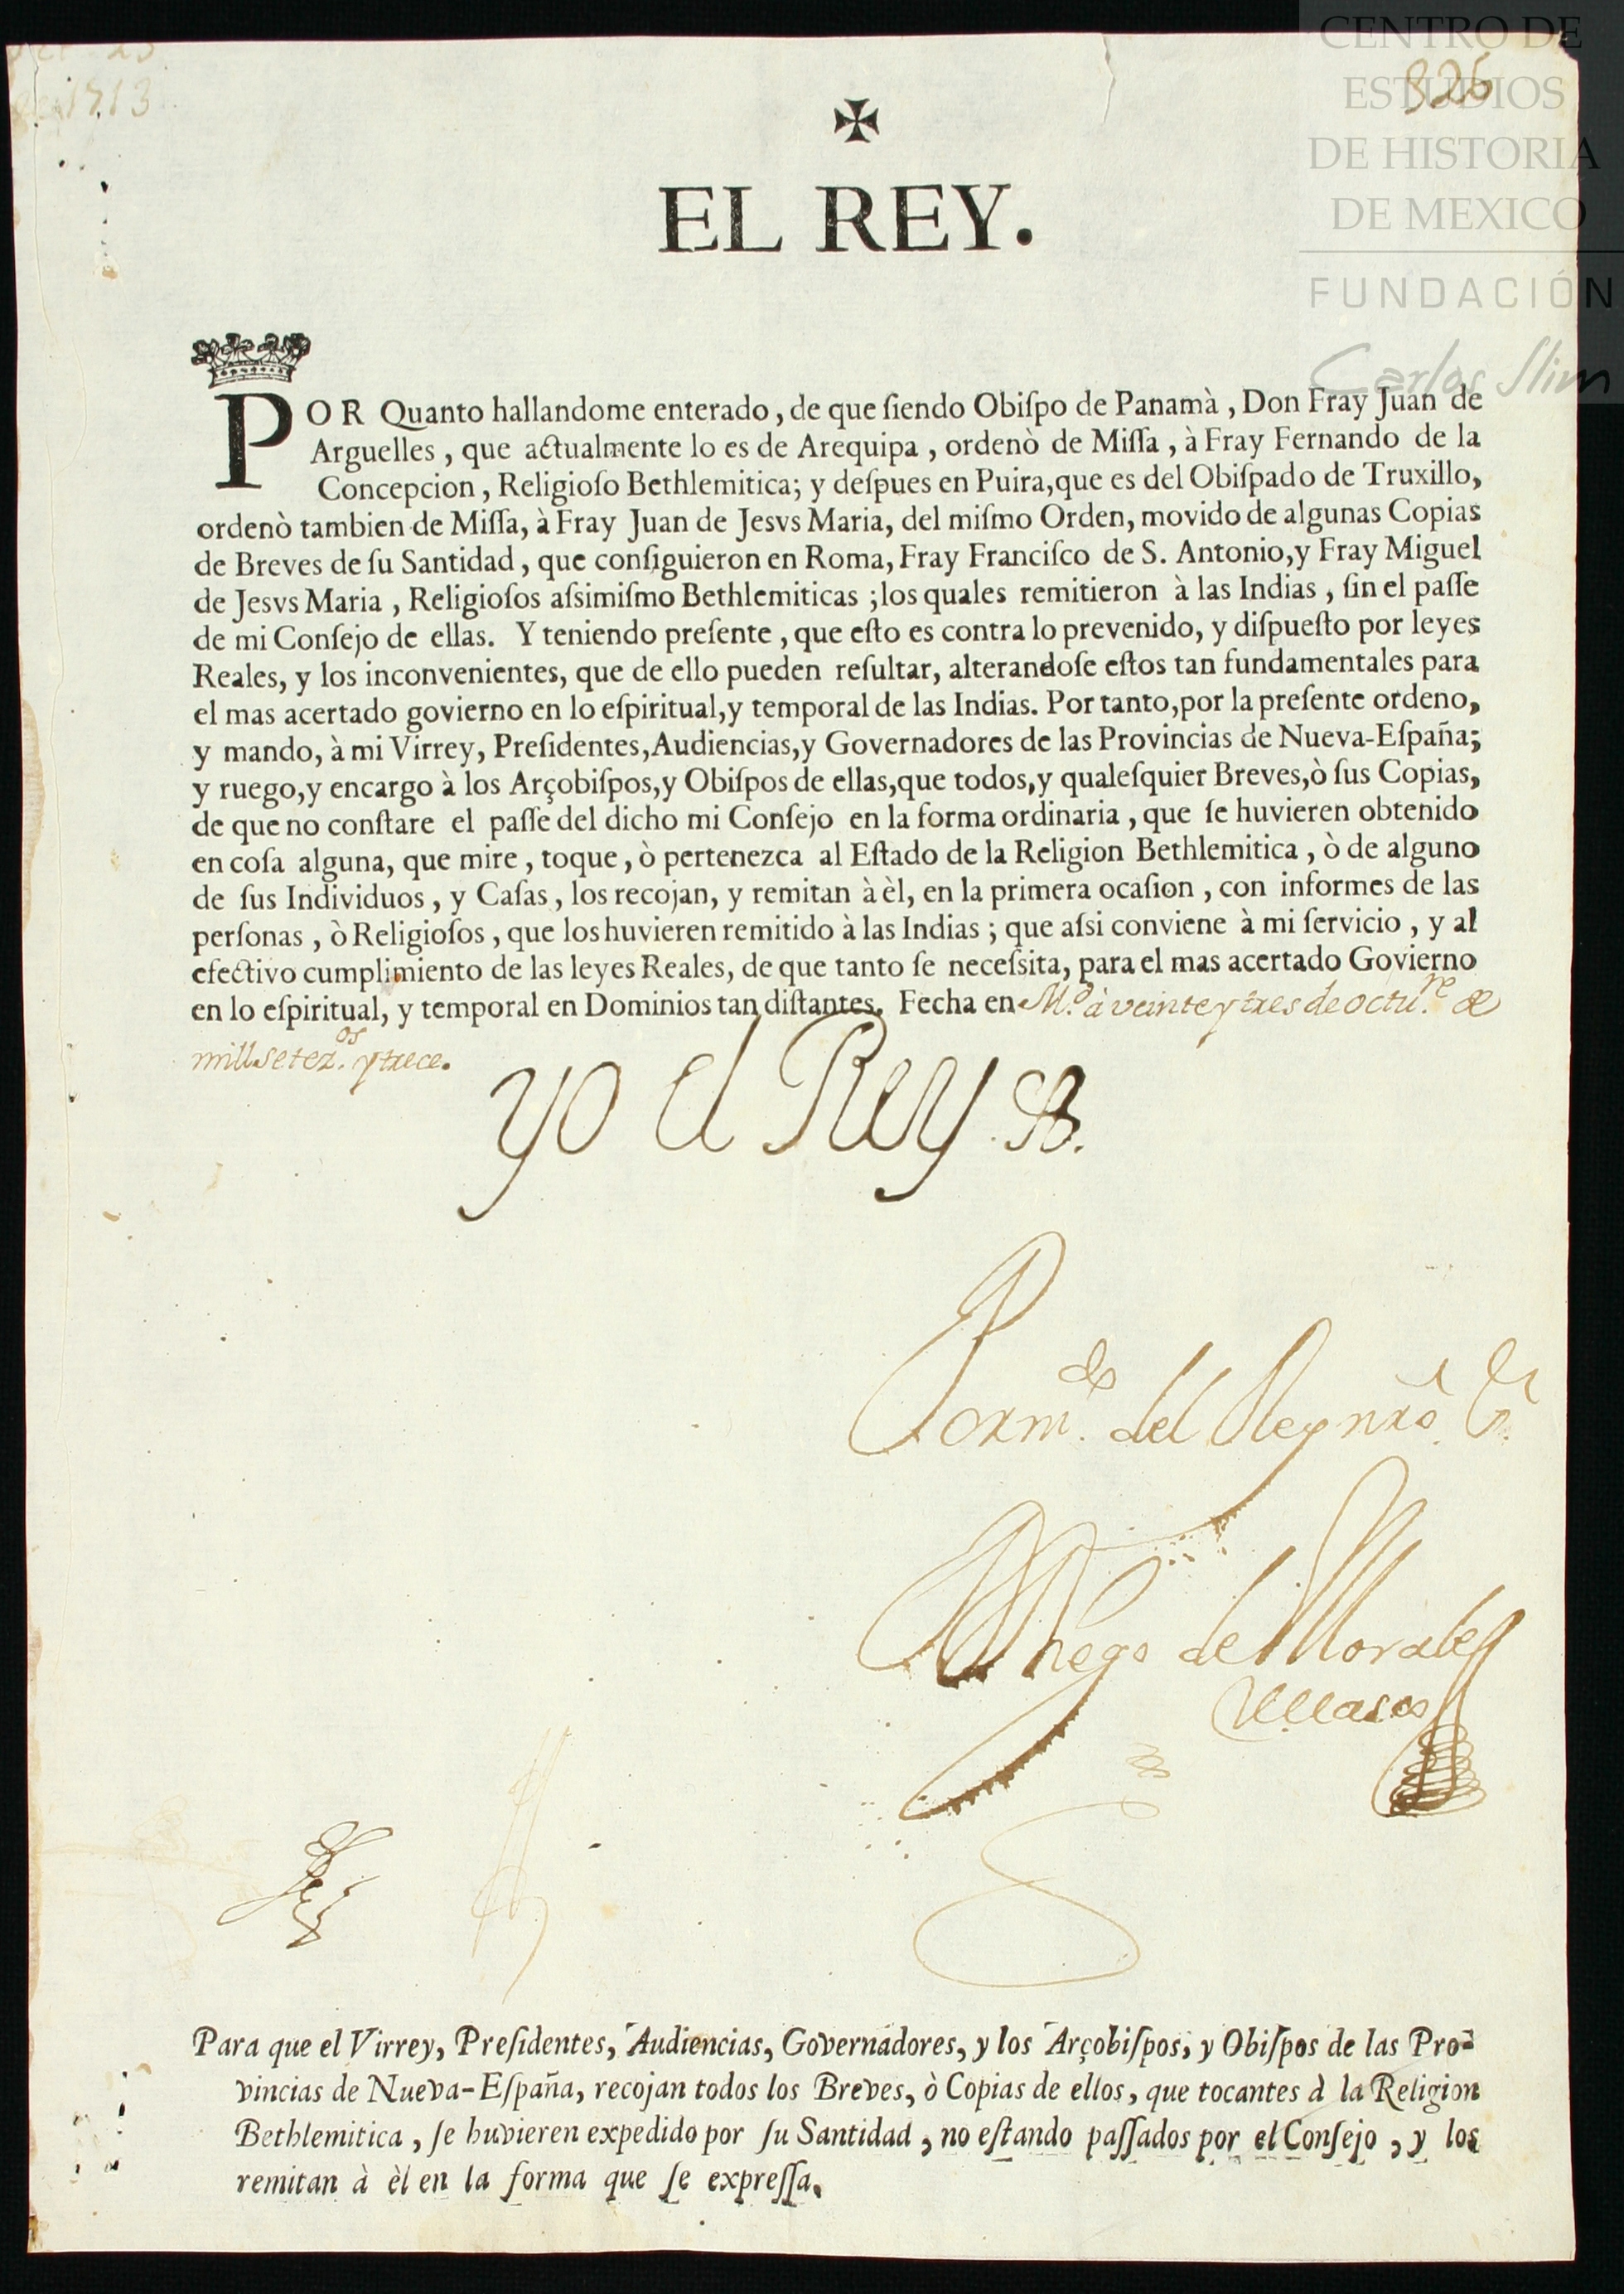 Oct 23
de 1713
826
CENTRO DE
ESTUDIOS
DE HISTORIA
DE MEXICO
FUNDACIÓN
Carlos Slim
✠
EL REY.
POR Quanto hallandome enterado, de que ſiendo Obiſpo de Panamà, Don Fray Juan de
Arguelles, que actualmente lo es de Arequipa, ordenò de Miſſa, à Fray Fernando de la
Concepcion, Religioſo Bethlemitica; y deſpues en Puira, que es del Obiſpado de Truxillo,
ordenò tambien de Miſſa, à Fray Juan de Jesvs Maria, del miſmo Orden, movido de algunas Copias
de Breves de ſu Santidad, que conſiguieron en Roma, Fray Franciſco de S. Antonio, y Fray Miguel
de Jesvs Maria, Religioſos aſsimiſmo Bethlemiticas; los quales remitieron à las Indias, ſin el paſſe
de mi Conſejo de ellas. Y teniendo preſente, que eſto es contra lo prevenido, y diſpueſto por leyes
Reales, y los inconvenientes, que de ello pueden reſultar, alterandoſe eſtos tan fundamentales para
el mas acertado govierno en lo eſpiritual, y temporal de las Indias. Por tanto, por la preſente ordeno,
y mando, à mi Virrey, Preſidentes, Audiencias, y Governadores de las Provincias de Nueva-Eſpaña;
y ruego, y encargo à los Arçobiſpos, y Obiſpos de ellas, que todos, y qualeſquier Breves, ò ſus Copias,
de que no conſtare el paſſe del dicho mi Conſejo en la forma ordinaria, que ſe huvieren obtenido
en coſa alguna, que mire, toque, ò pertenezca al Eſtado de la Religion Bethlemitica, ò de alguno
de ſus Individuos, y Caſas, los recojan, y remitan à èl, en la primera ocaſion, con informes de las
perſonas, ò Religioſos, que los huvieren remitido à las Indias; que aſsi conviene à mi ſervicio, y al
efectivo cumplimiento de las leyes Reales, de que tanto ſe neceſsita, para el mas acertado Govierno
en lo eſpiritual, y temporal en Dominios tan diſtantes. Fecha en M.d à veinte y tres de octu.re de
mill setez.os y trece.
Yo el Rey
Por m.do del Rey nro S.r
Diego de Morales
Velasco
Para que el Virrey, Preſidentes, Audiencias, Governadores, y los Arçobiſpos, y Obiſpos de las Pro-
vincias de Nueva-Eſpaña, recojan todos los Breves, ò Copias de ellos, que tocantes à la Religion
Bethlemitica, ſe huvieren expedido por ſu Santidad, no eſtando paſſados por el Conſejo, y los
remitan à èl en la forma que ſe expreſſa.